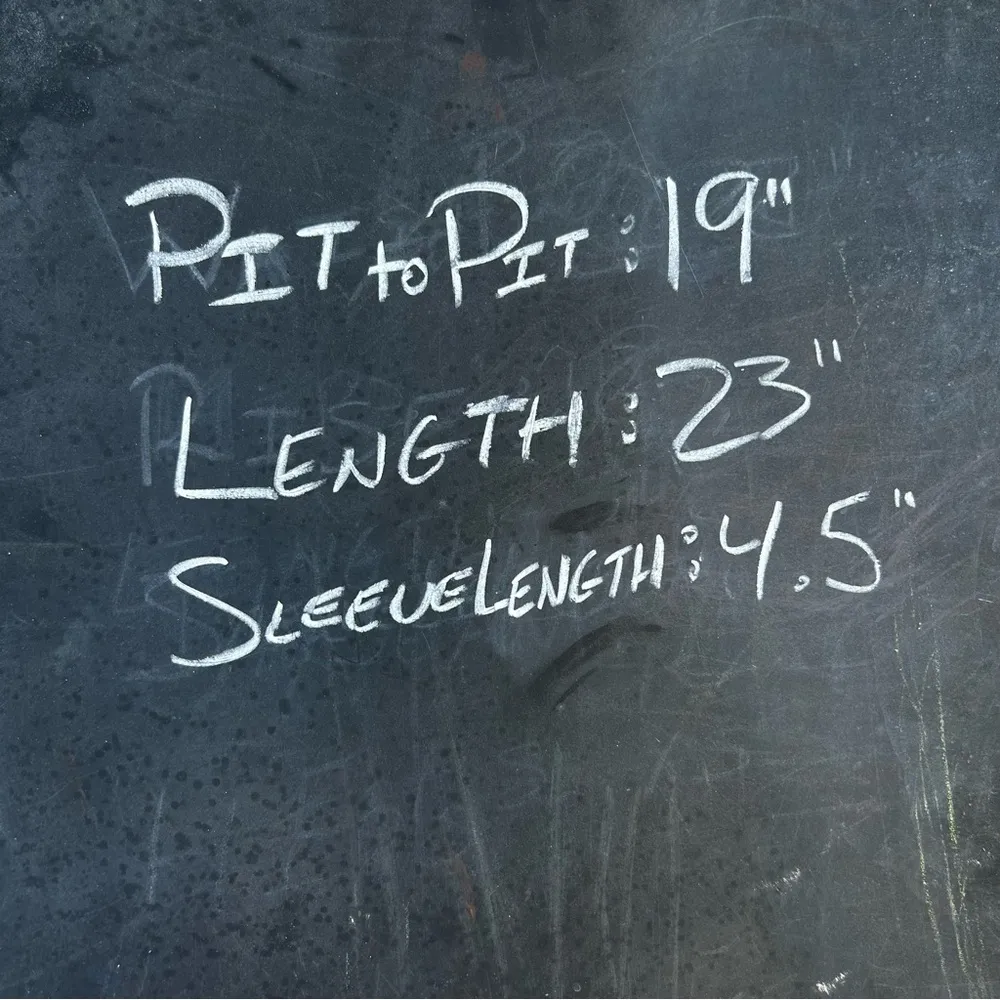 PIT to PIT: 19"
LENGTH: 23"
SLEEVE LENGTH: 4.5"